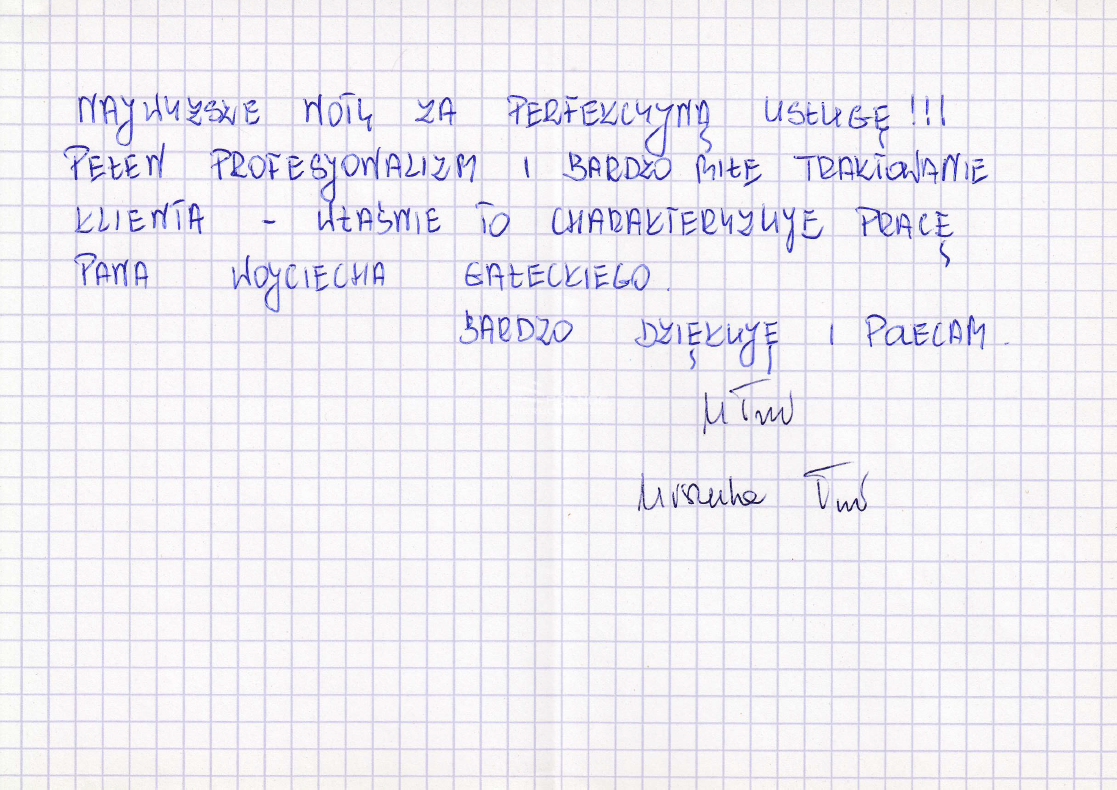 NAJWYŻSZE NOTY ZA PERFEKCYJNĄ USŁUGĘ!!!
PEŁEN PROFESJONALIZM I BARDZO MIŁE TRAKTOWANIE
KLIENTA - WŁAŚNIE TO CHARAKTERYZUJE PRACĘ
PANA WOJCIECHA GAŁECKIEGO.
BARDZO DZIĘKUJĘ I POLECAM.
Urszula